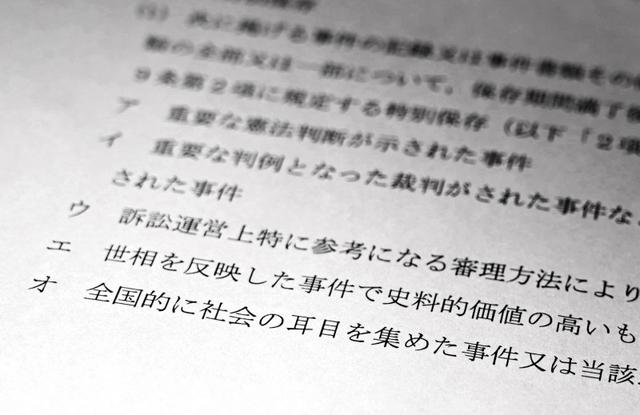 (1) 次に掲げる事件の記録又は事件書類その
類の全部又は一部について，保存期間満了後
9条第2項に規定する特別保存（以下「2項
ア 重要な憲法判断が示された事件
イ 重要な判例となった裁判がされた事件な
された事件
ウ 訴訟運営上特に参考になる審理方法により
エ 世相を反映した事件で史料的価値の高いも
オ 全国的に社会の耳目を集めた事件又は当該